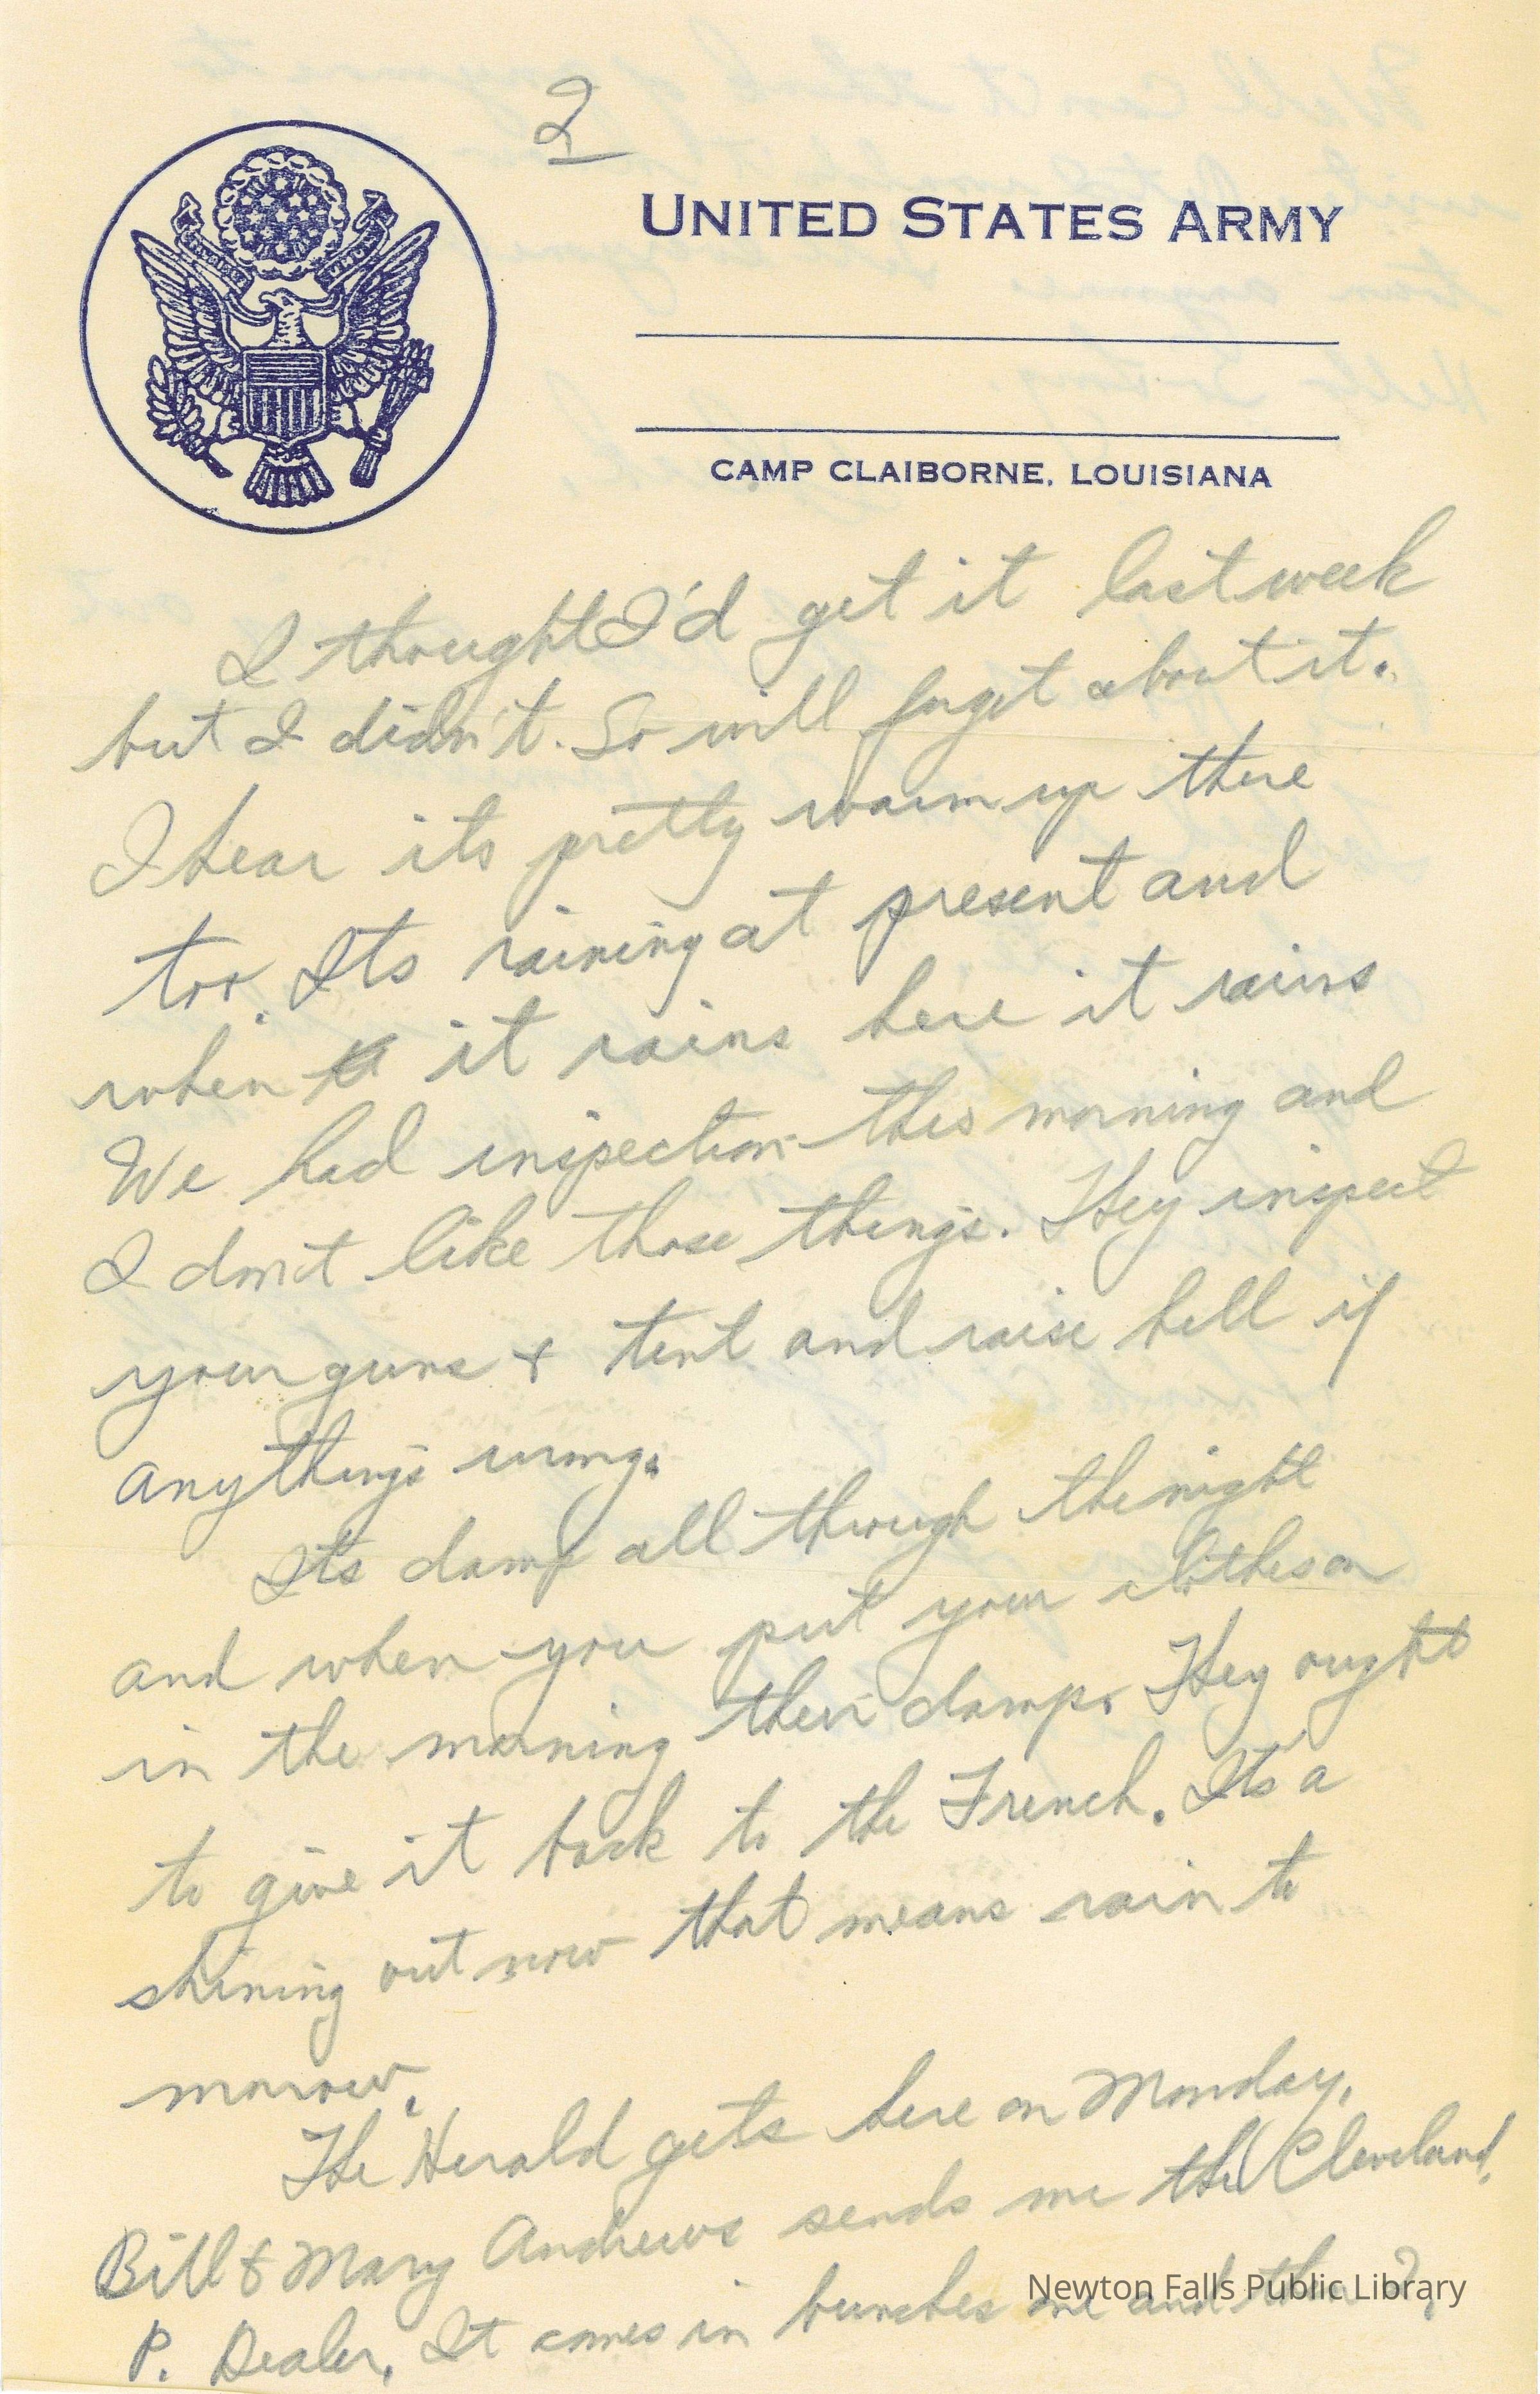 2
UNITED STATES ARMY
CAMP CLAIBORNE, LOUISIANA
I thought I'd get it last week
but I didn't. So will forget about it.
I hear its pretty warm up there
too. Its raining at present and
when it rains here it rains
We had inspection this morning and
I don't like those things. They inspect
your guns & tent and raise hell if
anythings wrong.
Its damp all through the night
and when you put your clothes on
in the morning their damp. They ought
to give it back to the French. Its a
shining out now that means rain to
morrow.
The Herald gets here on Monday.
Bill & Mary Andrews sends me the Cleveland
P. Dealer. It comes in bunches and
Newton Falls Public Library